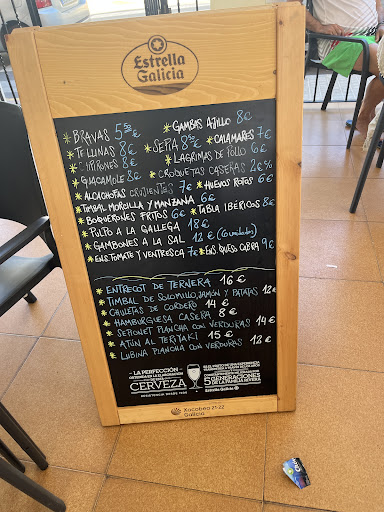 Estrella
Galicia
BRAVAS 5,50€
GAMBAS AJILLO 8€
TELLUNAS 8€
SEPIA 8,50€
CALAMARES 7€
CHIPIRONES 8€
LAGRIMAS DE POLLO 6€
GUACAMOLE 8€
CROQUETAS CASERAS
ALCACHOFAS CRUJIENTES 7€
HUEVOS ROTOS 6€
TIMBAL MORCILLA Y MANZANA 6€
BOQUERONES FRITOS 6€
TABLA IBÉRICOS 8€
PULPO A LA GALLEGA 18€
GAMBONES A LA SAL 12€
ENS. TOMATE Y VENTRESCA 7€
ENS. QUESO CABRA 9€
ENTRECOT DE TERNERA 16€
TIMBAL DE SOLOMILLO, JAMÓN Y PATATAS 12€
CHULETAS DE CORDERO 14€
HAMBURGUESA CASERA 8€
SEPIONET PLANCHA CON VERDURAS 14€
ATÚN AL TERIYAKI 15€
LUBINA PLANCHA CON VERDURAS 12€
LA PERFECCIÓN
CERVEZA
RESISTENCIA DESDE 1906
5 GENERACIONES
DE LA FAMILIA RIVERA
Estrella Galicia
Xacobeo 21·22
Galicia